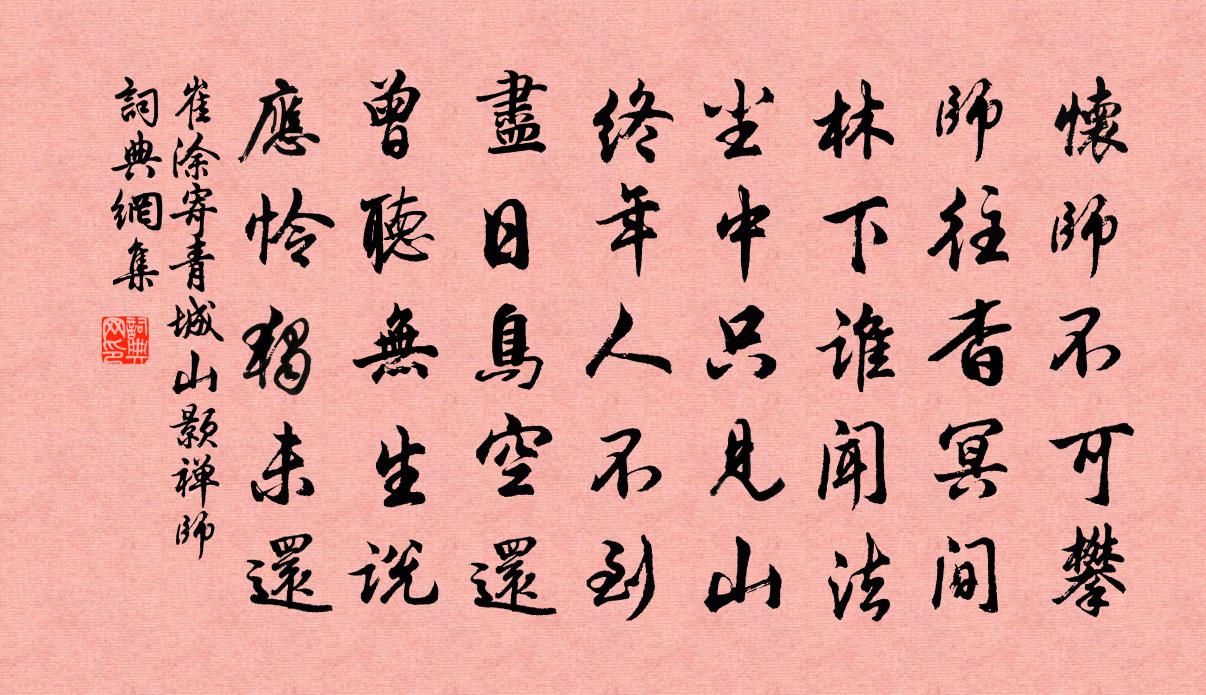 懷師不可攀
師往杳冥間
林下誰聞法
尘中只見山
終年人不到
盡日鳥空還
曾聽無生說
應怜獨未還
崔涂寄青城山顥禅師
詞典網集
詞典网印